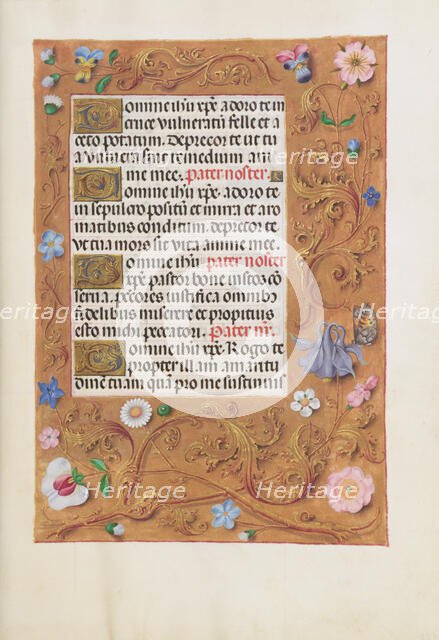 Domine ihu xpe adoro te in
cruce vulneratum felle et a
ceto potatum. Deprecor te ut tu
a vulnera sint remedium ani
me mee. Pater noster.
Domine ihu xpe adoro te
in sepulcro positu et mirra et aro
matibus conditum. deprecor te
ut tua mors sit vita anime mee.
Domine ihu pater noster
xpe pastor bone iustos co
serua. peccores iustifica omnibz
fidelibus miserere et propitius
esto michi peccatori. Pater nr.
Domine ihu xpe Rogo te
propter illam amaritu
dinem tuam quam pro me sustinuisti
Heritage
Heritage
Heritage
Heritage
Heritage
Heritage
Heritage
Heritage